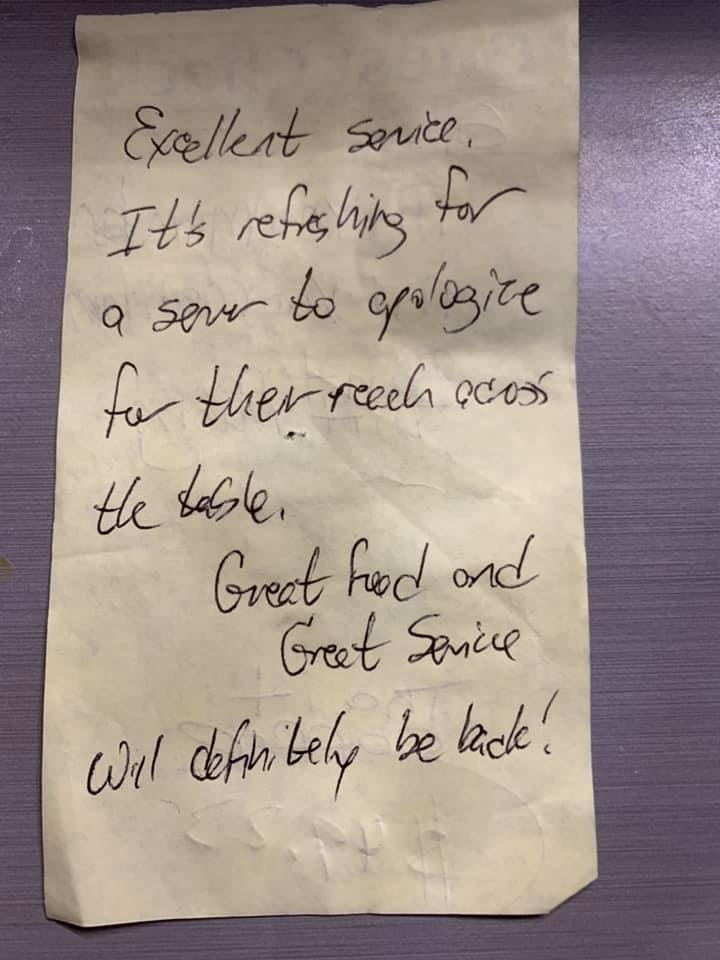 Excellent service.
It's refreshing for
a server to apologize
for their reach across
the table.
Great food and
Great Service
Will definitely be back!